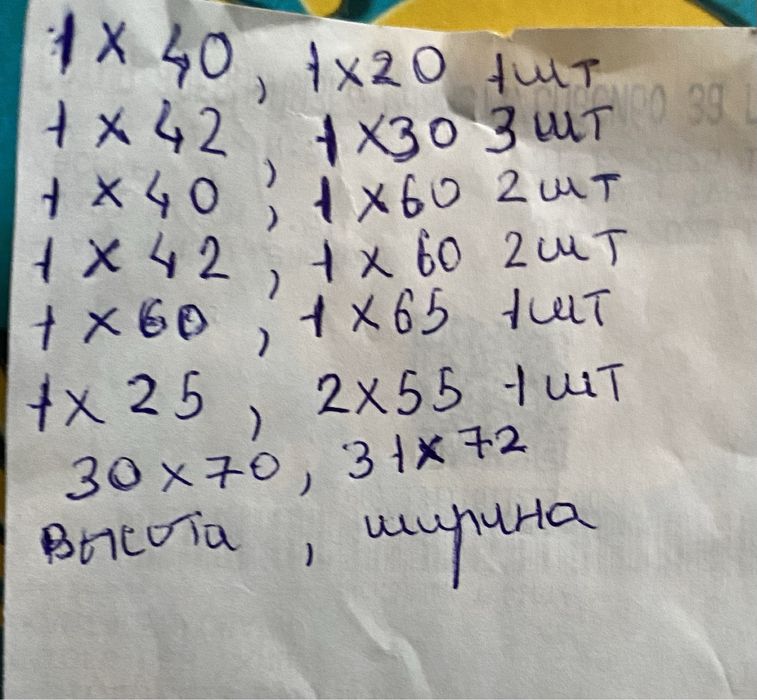 1 x 40, 1 x 20 1 шт
1 x 42, 1 x 30 3 шт
1 x 40, 1 x 60 2 шт
1 x 42, 1 x 60 2 шт
1 x 60, 1 x 65 1 шт
1 x 25, 2 x 55 1 шт
30 x 70, 31 x 72
высота, ширина